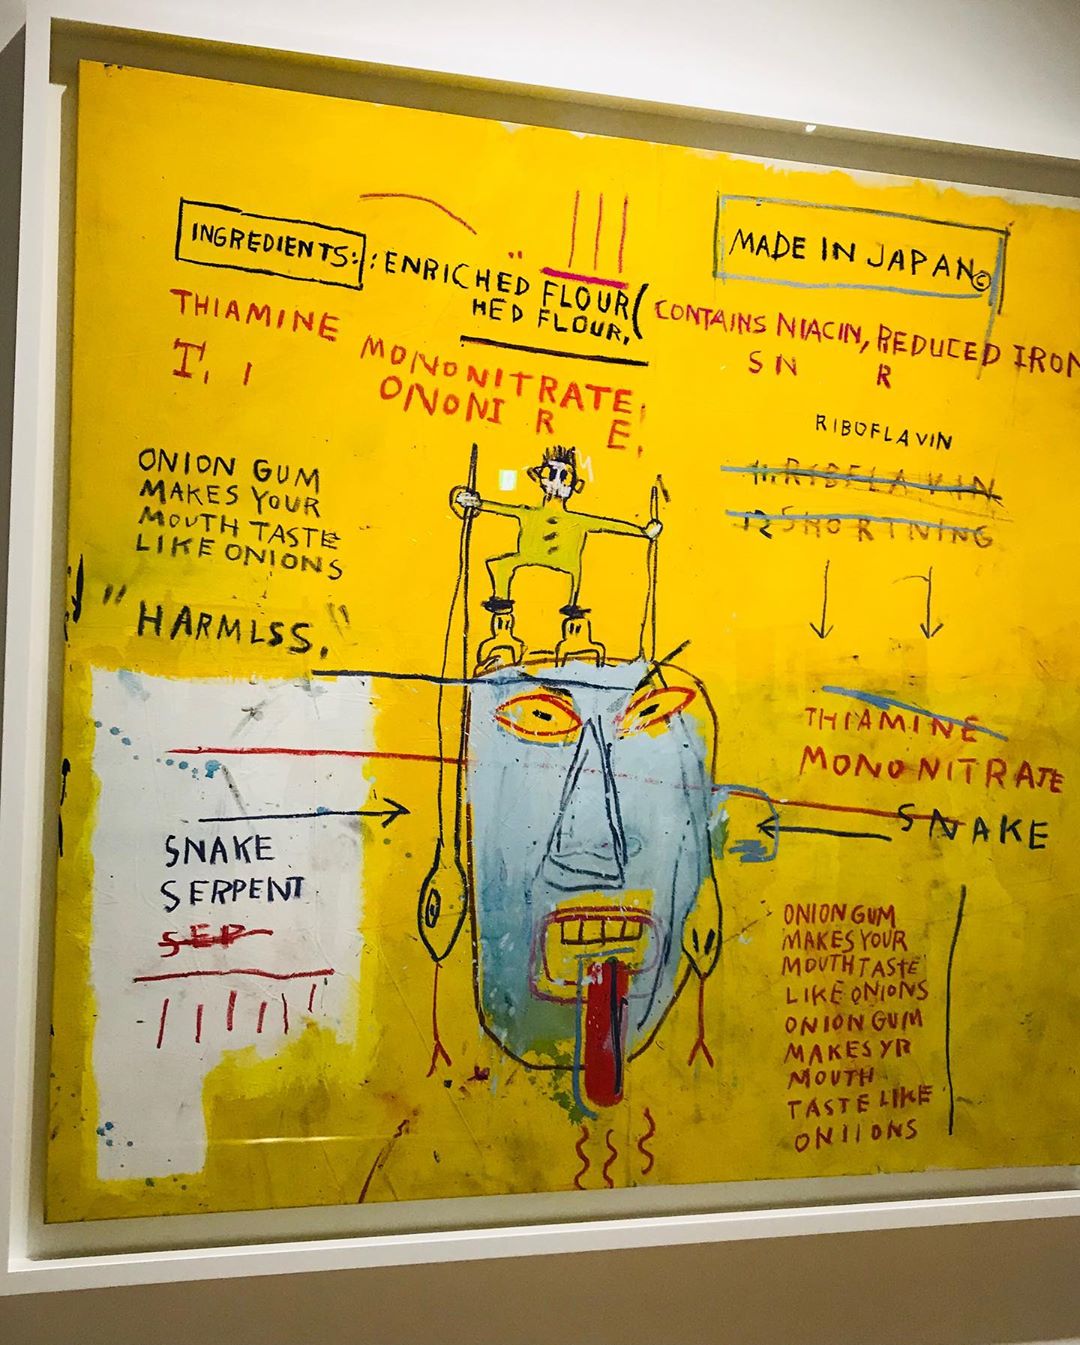 INGREDIENTS: : ENRICHED FLOUR(
HED FLOUR,
MADE IN JAPAN ©
CONTAINS NIACIN, REDUCED IRON
SN R
THIAMINE MONONITRATE,
T, I ONONI R E,
RIBOFLAVIN
11. RIBFLAVIN
12 SHORTNING
ONION GUM
MAKES YOUR
MOUTH TASTE
LIKE ONIONS
"HARMLSS,"
THIAMINE
MONONITRATE
SNAKE
SNAKE
SERPENT
SEP
ONION GUM
MAKES YOUR
MOUTH TASTE
LIKE ONIONS
ONION GUM
MAKES YR
MOUTH
TASTE LIKE
ONIIONS